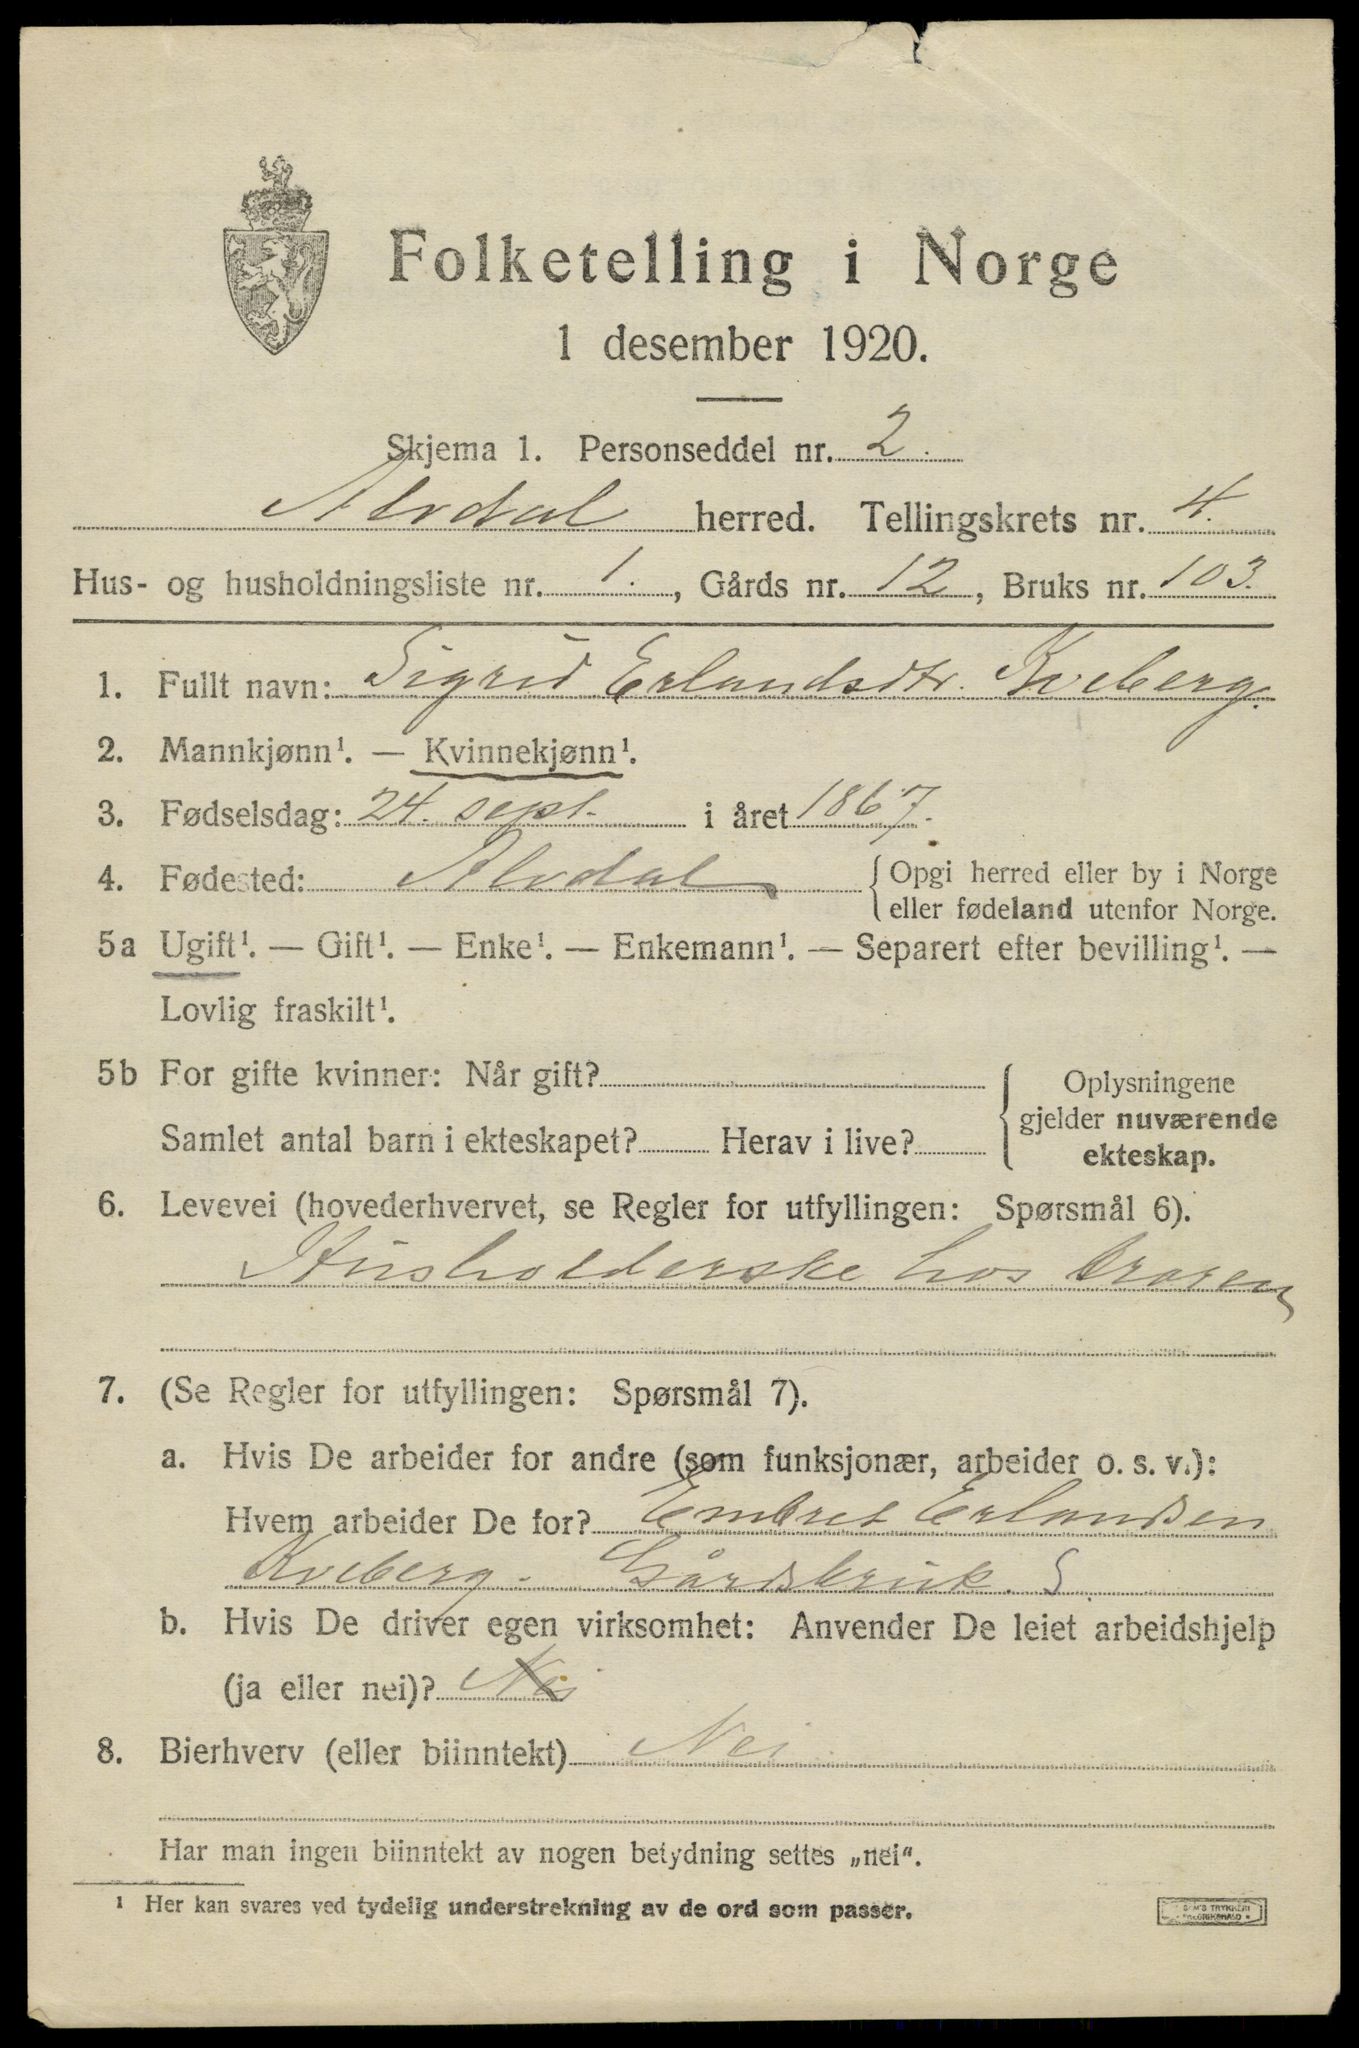 Folketelling i Norge
1 desember 1920.
Skjema 1. Personseddel nr. 2.
Alvdal herred. Tellingskrets nr. 4.
Hus- og husholdningsliste nr. 1., Gårds nr. 12, Bruks nr. 103.
1. Fullt navn: Sigrid Erlandsdtr. Kveberg.
2. Mannkjønn¹. — Kvinnekjønn¹.
3. Fødselsdag: 24. sept. i året 1867.
4. Fødested: Alvdal {Opgi herred eller by i Norge
eller fødeland utenfor Norge.
5a Ugift¹. — Gift¹. — Enke¹. — Enkemann¹. — Separert efter bevilling¹. —
Lovlig fraskilt¹.
5b For gifte kvinner: Når gift? { Oplysningene
gjelder nuværende
Samlet antal barn i ekteskapet? Herav i live?
ekteskap.
6. Levevei (hovederhvervet, se Regler for utfyllingen: Spørsmål 6).
Husholderske hos broren
7. (Se Regler for utfyllingen: Spørsmål 7).
a. Hvis De arbeider for andre (som funksjonær, arbeider o. s. v.):
Hvem arbeider De for? Embret Erlandsen
Kveberg. Gårdsbruk. S
b. Hvis De driver egen virksomhet: Anvender De leiet arbeidshjelp
(ja eller nei)? Nei
8. Bierhverv (eller biinntekt) Nei.
Har man ingen biinntekt av nogen betydning settes „nei“.
¹ Her kan svares ved tydelig understrekning av de ord som passer.
TRYKKERI